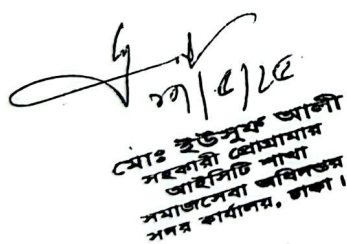 ২৭/৫/২৫
মোঃ ইউসুফ আলী
সহকারী প্রোগ্রামার
আইসিটি শাখা
সমাজসেবা অধিদপ্তর
সদর কার্যালয়, ঢাকা।